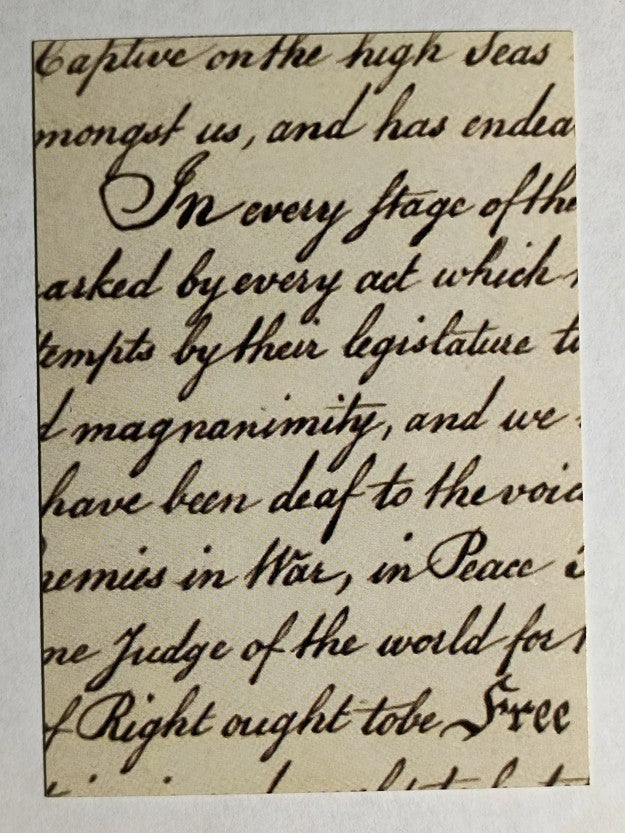 Captive on the high Seas
mongst us, and has endea
In every stage of the
arked by every act which
tempts by their legislature t
d magnanimity, and we
have been deaf to the voic
nemies in War, in Peace
me Judge of the world for
f Right ought to be Free